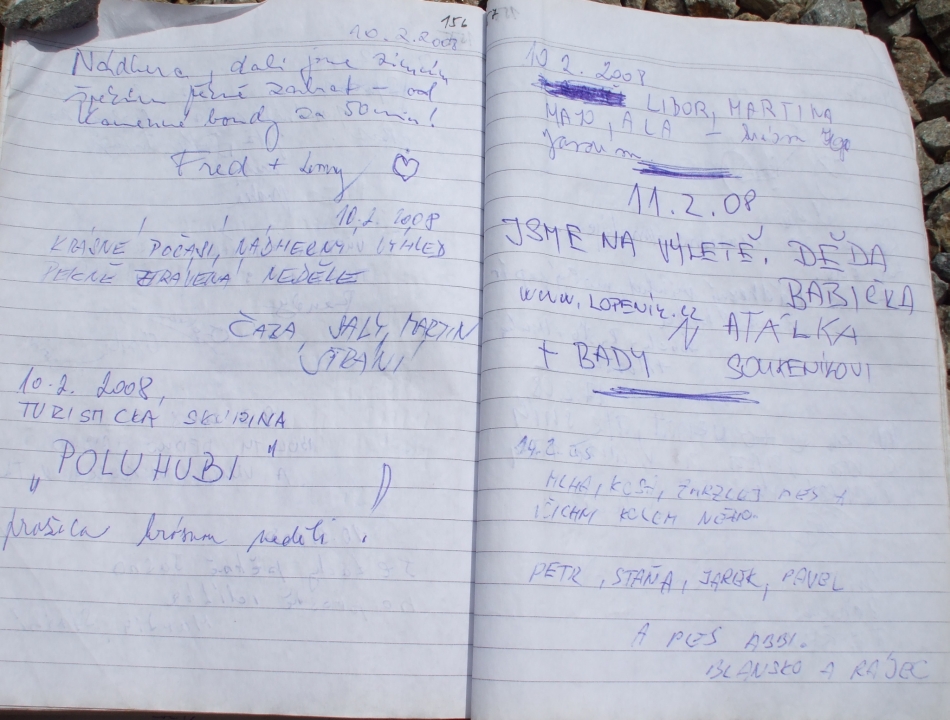 156
10.2.2008
Nádhera, dali jsme zimním
pěkně zabrat - od
Kamenné boudy za 50 min!
Fred + Lenny
10.2.2008
KRÁSNÉ POČASÍ, NÁDHERNÝ VÝHLED
PĚKNĚ STRÁVENÁ NEDĚLE
ČAZA, JALY, MARTIN
STRÁNÍ
10.2. 2008,
TURISTICKÁ SKUPINA
„POLUHUBI"
krásnu neděli.
10 2. 2008
LIBOR, MARTINA
MAJO, ALA -
11.2.08
JSME NA VÝLETĚ. DĚDA
BABIČKA
www.LOPENIK.CZ NATÁLKA
+ BADY SOUKENÍKOVI
14.2. 08
MLHA, KOSA, ZMRZLEJ PES A
KOLEM NĚHO.
PETR, STAŇA, JAREK, PAVEL
A PES ABBI.
BLANSKO A RÁJEC